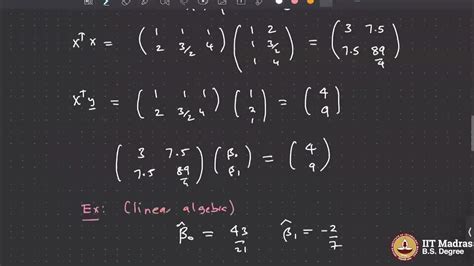 XᵀX = ( 1 1 1 ; 2 3/2 4 ) ( 1 2 ; 1 3/2 ; 1 4 ) = ( 3 7.5 ; 7.5 89/4 )
Xᵀy = ( 1 1 1 ; 2 3/2 4 ) ( 1 ; 2 ; 1 ) = ( 4 ; 9 )
( 3 7.5 ; 7.5 89/4 ) ( β₀ ; β₁ ) = ( 4 ; 9 )
Ex: (linear algebra)
β̂₀ = 43/21 β̂₁ = -2/7
IIT Madras
B.S. Degree